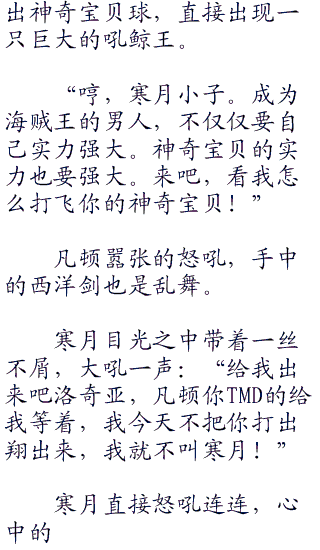 出神奇宝贝球，直接出现一
只巨大的吼鲸王。
“哼，寒月小子。成为
海贼王的男人，不仅仅要自
己实力强大。神奇宝贝的实
力也要强大。来吧，看我怎
么打飞你的神奇宝贝！”
凡顿嚣张的怒吼，手中
的西洋剑也是乱舞。
寒月目光之中带着一丝
不屑，大吼一声：“给我出
来吧洛奇亚，凡顿你TMD的给
我等着，我今天不把你打出
翔出来，我就不叫寒月！”
寒月直接怒吼连连，心
中的